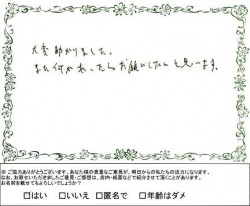 大変助かりました。
また何かあったらお願いしたいと思います。
※ご協力ありがとうございます。あなた様の貴重なご意見が、明日からの私たちの活力になります。
なお、お寄せいただきましたご意見・ご感想は、店内・紙面などで紹介させて頂くことがあります。
お名前を載せてもよろしいでしょうか?
□はい □いいえ □匿名で □年齢はダメ